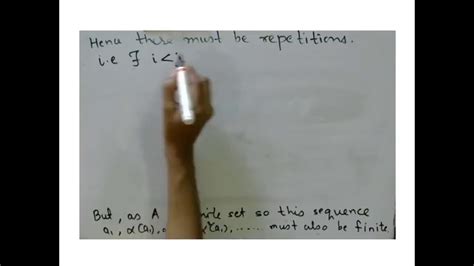 Hence there must be repetitions.
i.e ∃ i<
But, as A set so this sequence
a₁, α(a₁), must also be finite